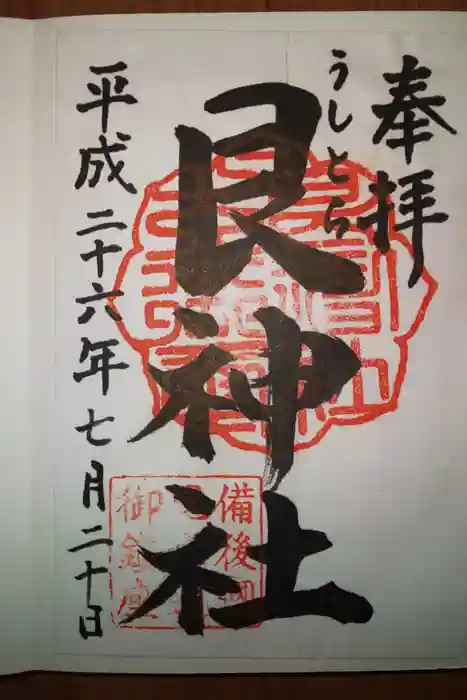 奉拝
うしとら
艮神社
平成二十六年七月二十日
備後國
御鎮座